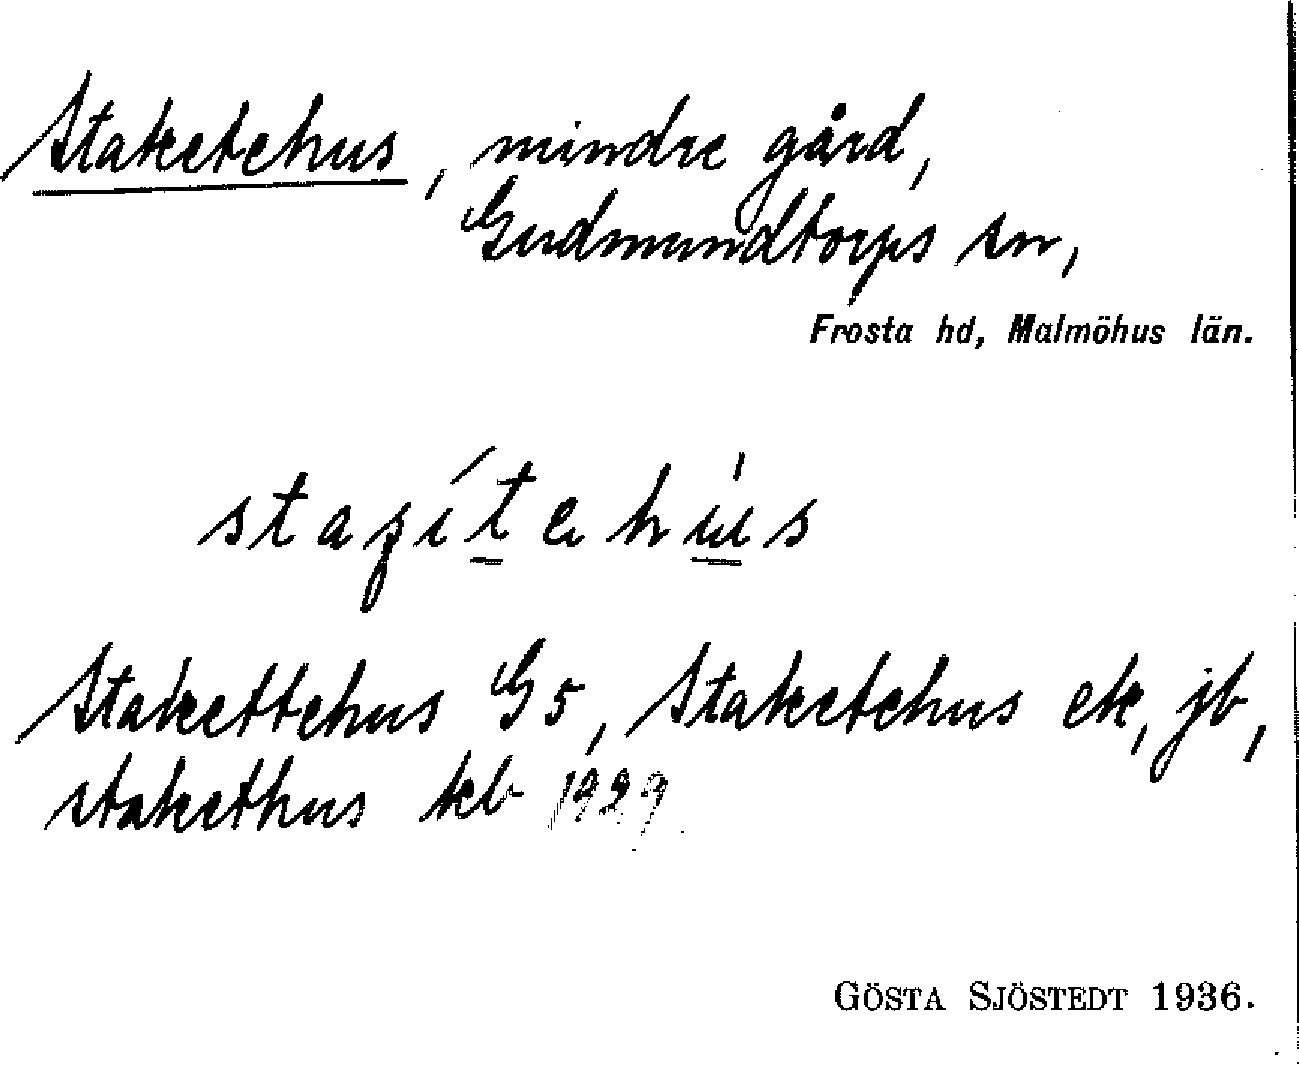 Staketehus, mindre gård,
Gudmundtorps sn,
Frosta hd, Malmöhus län.
Stakettehus G5, Staketehus ek, jb,
stakethus kb 1929.
GÖSTA SJÖSTEDT 1936.